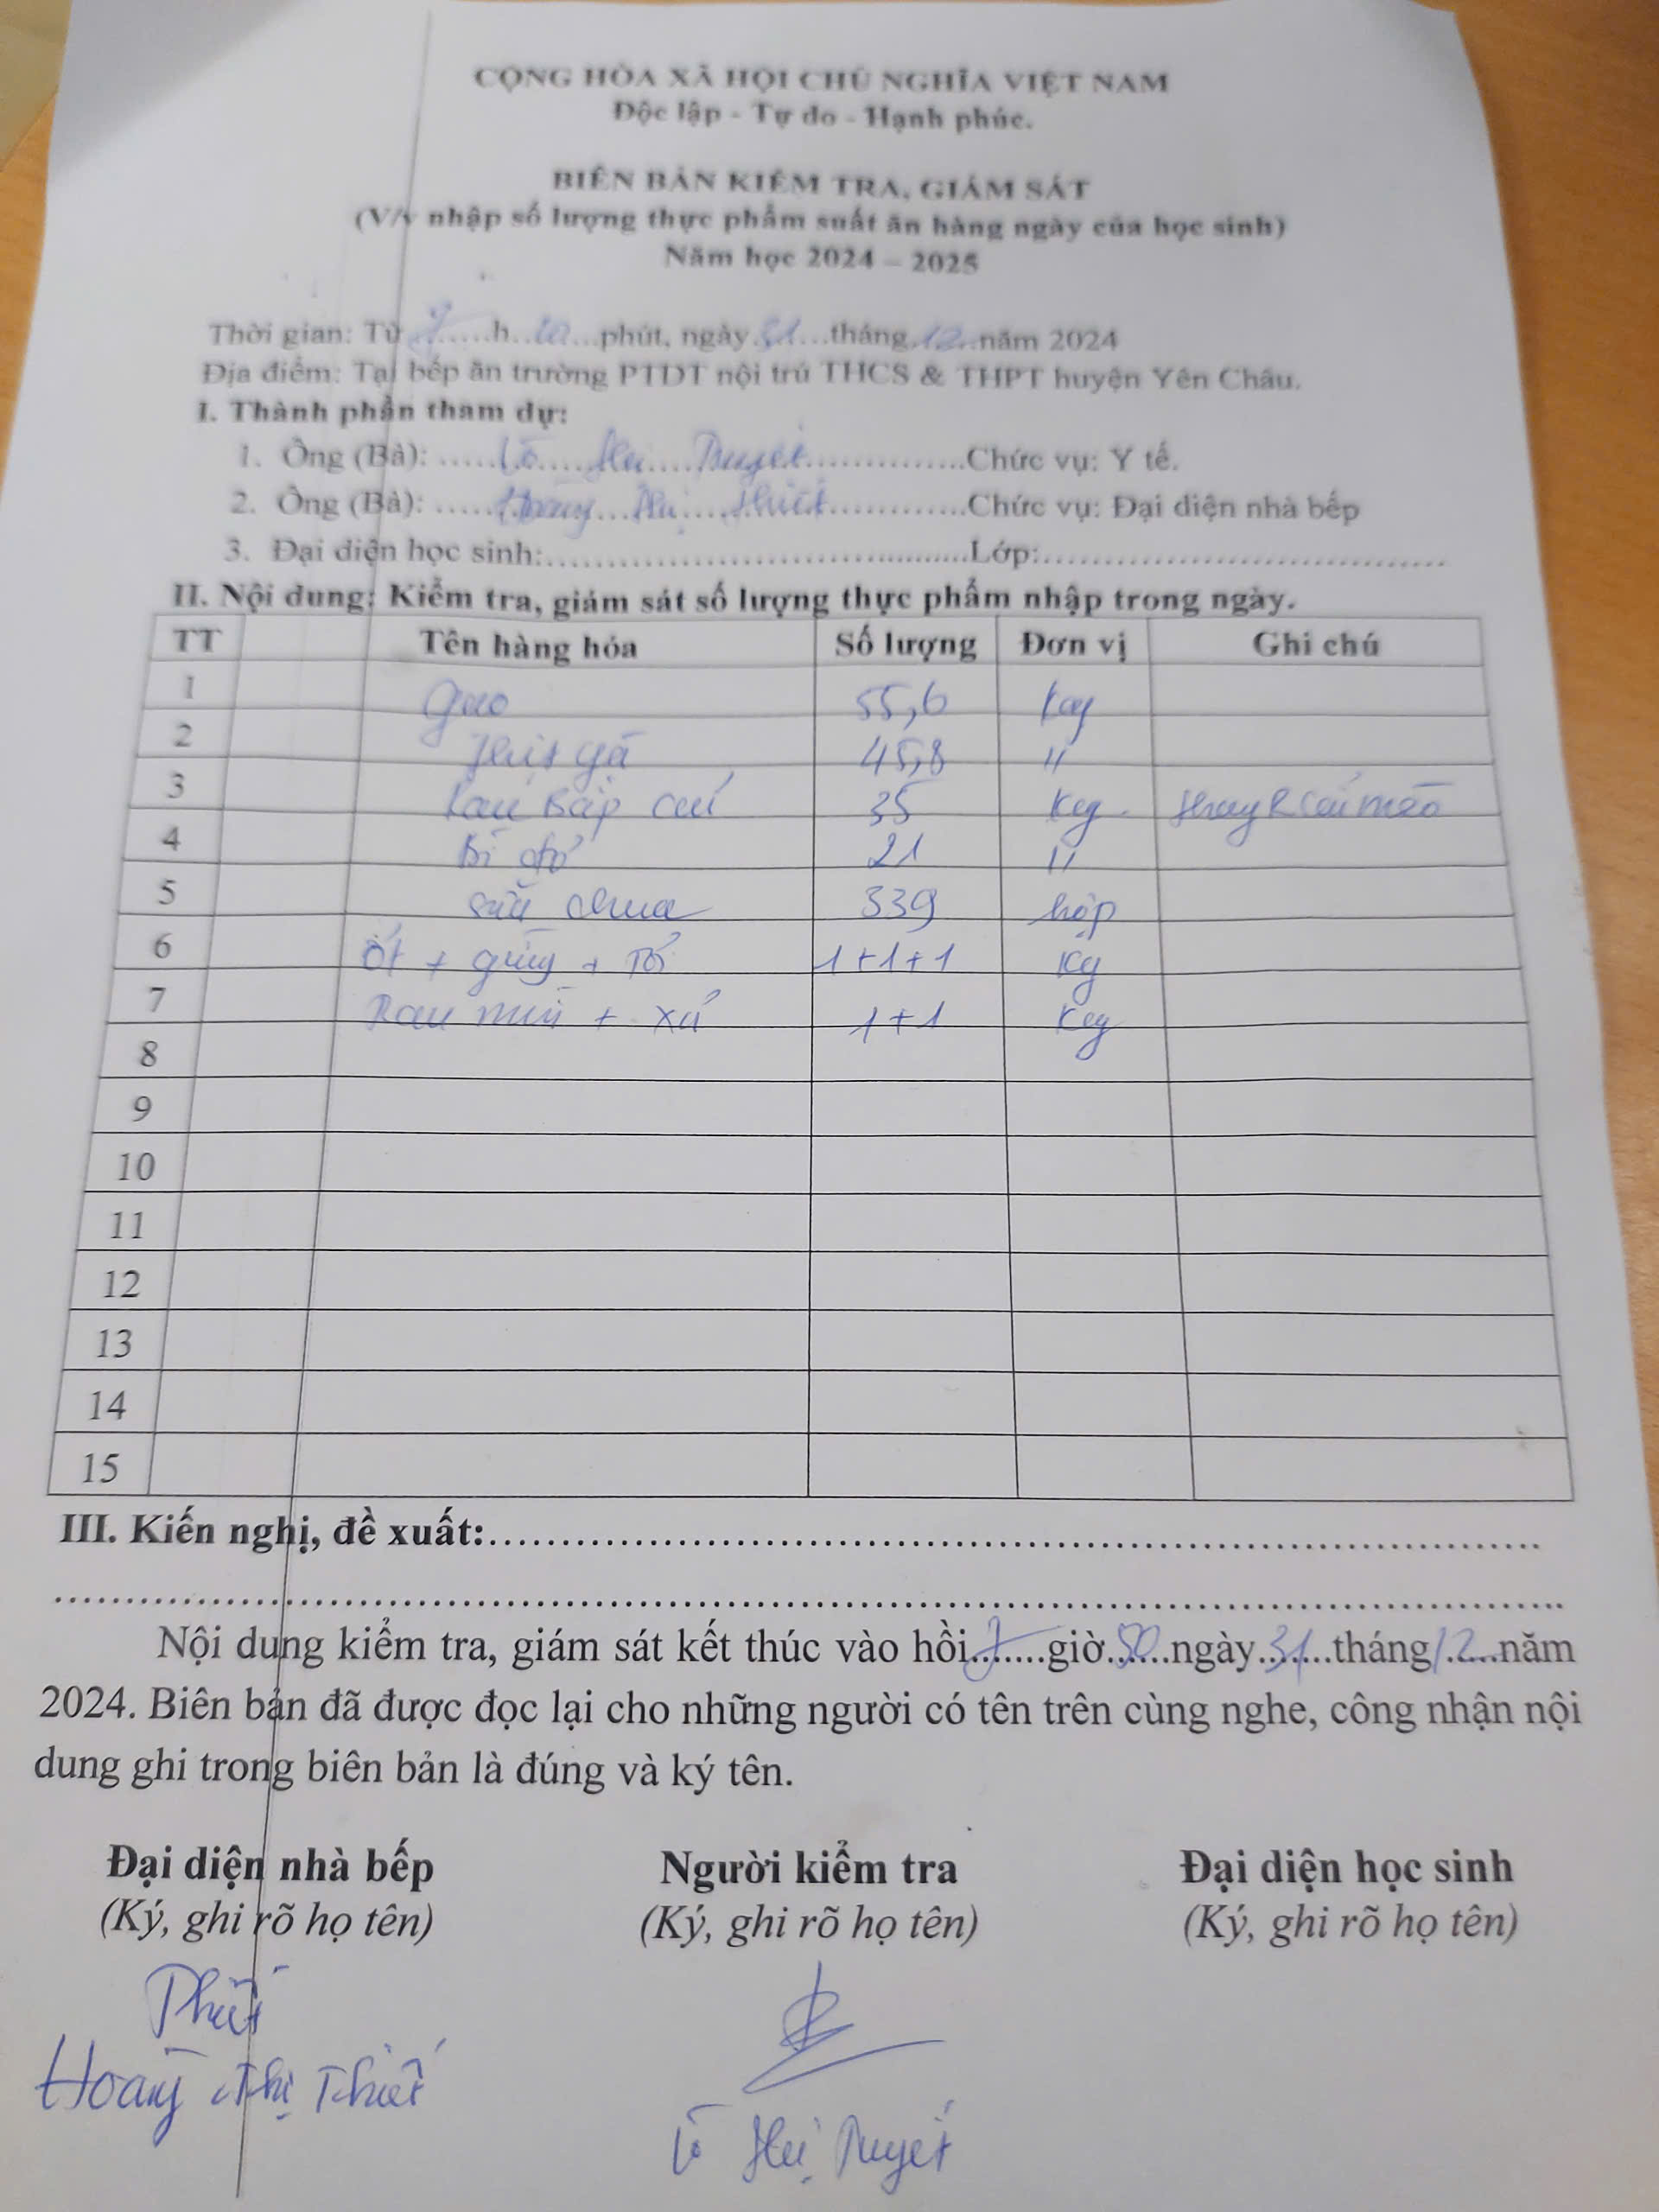 CỘNG HÒA XÃ HỘI CHỦ NGHĨA VIỆT NAM
Độc lập - Tự do - Hạnh phúc.
BIÊN BẢN KIỂM TRA, GIÁM SÁT
(V/v nhập số lượng thực phẩm suất ăn hàng ngày của học sinh)
Năm học 2024 – 2025
Thời gian: Từ 7 h 20 phút, ngày 31 tháng 12 năm 2024
Địa điểm: Tại bếp ăn trường PTDT nội trú THCS & THPT huyện Yên Châu.
I. Thành phần tham dự:
1. Ông (Bà): Lò Thị Tuyết Chức vụ: Y tế.
2. Ông (Bà): Hoàng Thị Thiết Chức vụ: Đại diện nhà bếp
3. Đại diện học sinh: Lớp:
II. Nội dung: Kiểm tra, giám sát số lượng thực phẩm nhập trong ngày.
TT Tên hàng hóa Số lượng Đơn vị Ghi chú
1 Gạo 55,6 kg
2 Thịt gà 45,8 "
3 Rau bắp cải 35 kg Thay R cải mèo
4 Bí đỏ 21 "
5 Sữa chua 339 hộp
6 Ớt + gừng + Tỏi 1+1+1 kg
7 Rau mùi + xả 1+1 kg
8
9
10
11
12
13
14
15
III. Kiến nghị, đề xuất:
Nội dung kiểm tra, giám sát kết thúc vào hồi 7 giờ 50 ngày 31 tháng 12 năm
2024. Biên bản đã được đọc lại cho những người có tên trên cùng nghe, công nhận nội
dung ghi trong biên bản là đúng và ký tên.
Đại diện nhà bếp Người kiểm tra Đại diện học sinh
(Ký, ghi rõ họ tên) (Ký, ghi rõ họ tên) (Ký, ghi rõ họ tên)
Hoàng Thị Thiết
Lò Thị Tuyết